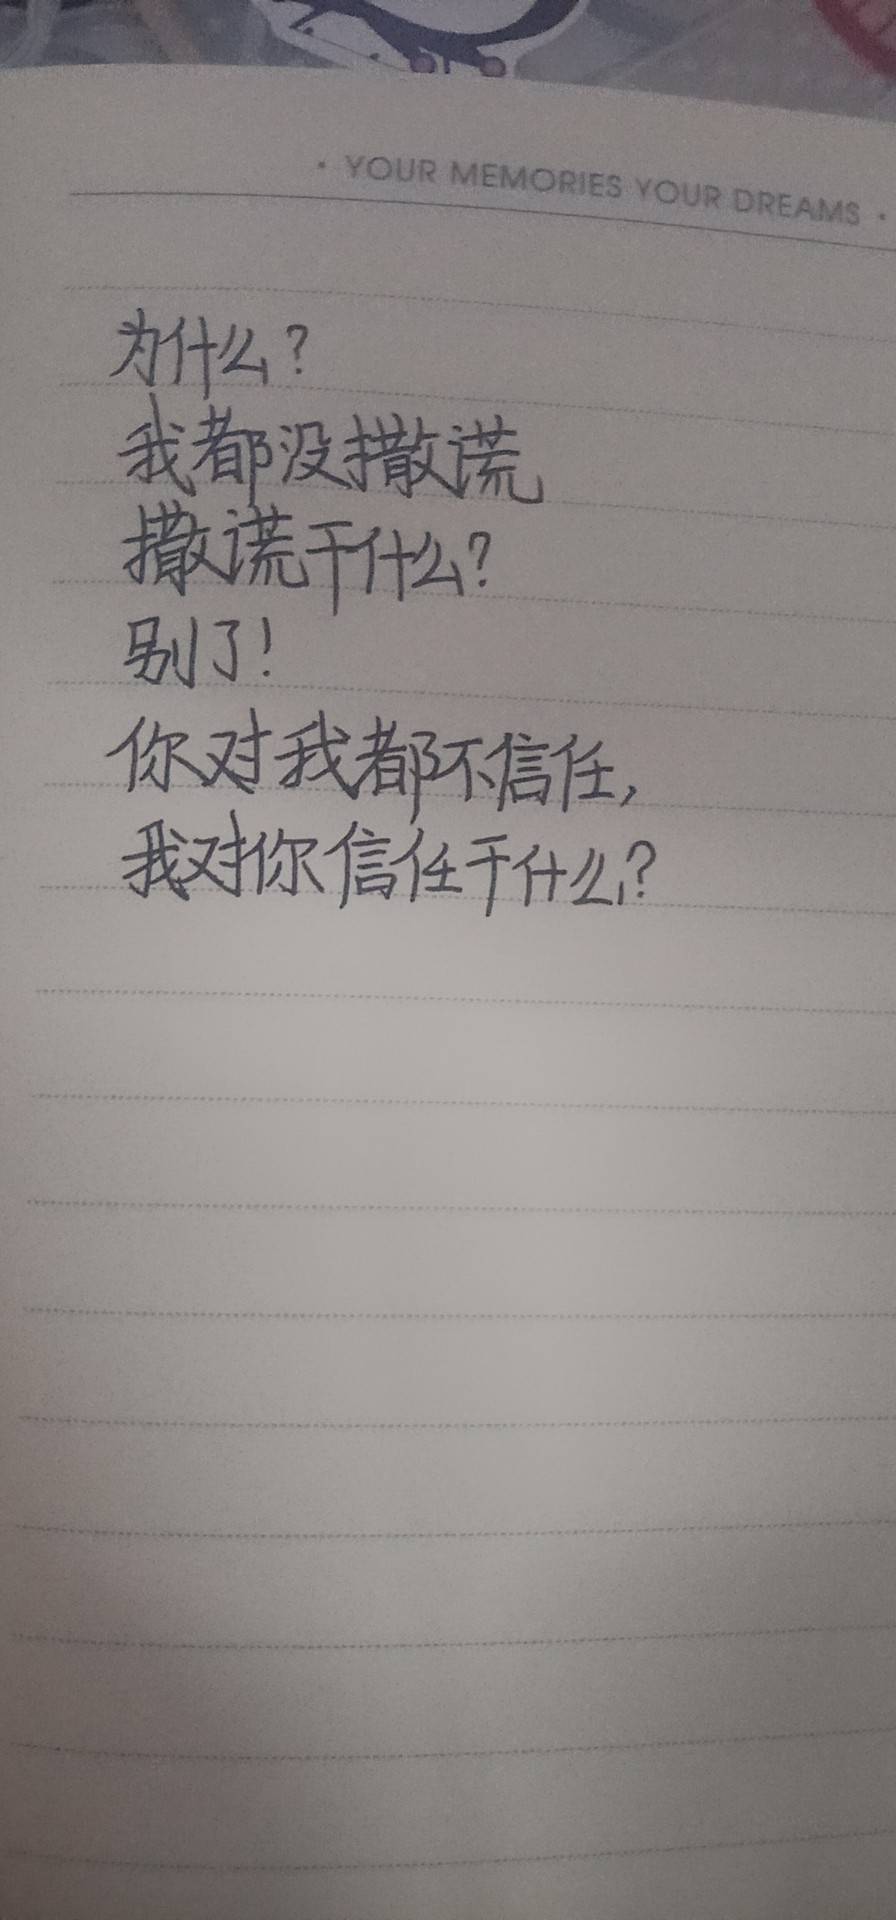 · YOUR MEMORIES YOUR DREAMS ·
为什么?
我都没撒谎
撒谎干什么?
别了!
你对我都不信任,
我对你信任干什么?